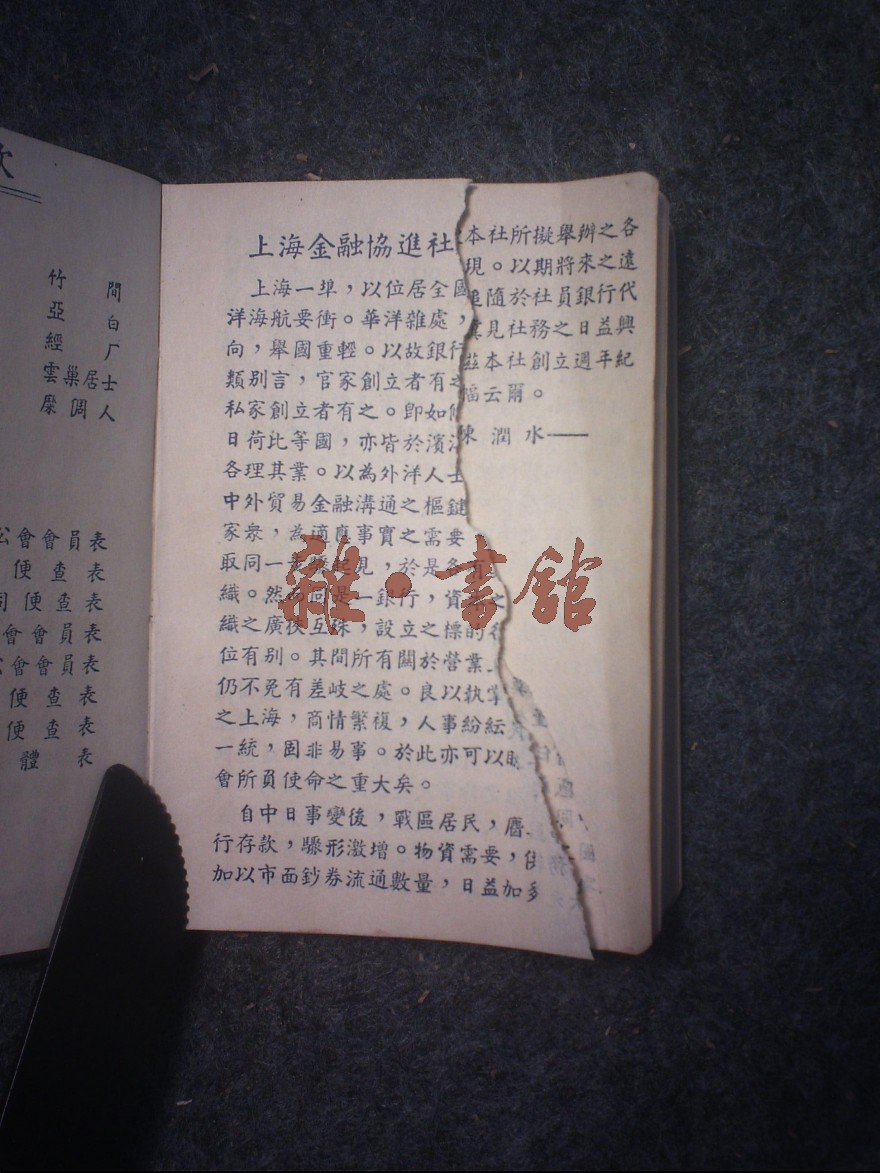 次
竹 間
亞 白
經 厂
雲巢居士
糜 調人
公會會員表
便查表
同便查表
會會員表
公會會員表
便查表
便查表
體表
上海金融協進社
上海一埠，以位居全國
洋海航要衝。華洋雜處，
向，舉國重輕。以故銀行
類別言，官家創立者有之
私家創立者有之。卽如
日荷比等國，亦皆於濱
各理其業。以為外洋人士
中外貿易金融溝通之樞鍵
家衆，為適應事實之需要
取同一步驟起見，於是各有
織。然而同是一銀行，資 之
織之廣狹互殊，設立之標的各
位有别。其間所有關於營業上
仍不免有差岐之處。良以執掌
之上海，商情繁複，人事紛紜
一統，固非易事。於此亦可以
會所負使命之重大矣。
自中日事變後，戰區居民，麕
行存款，驟形激增。物資需要，供
加以市面鈔券流通數量，日益加多
本社所擬舉辦之各
現。以期將來之遠
追隨於社員銀行代
見社務之日益興
茲本社創立週年紀
幅云爾。
陳潤水——
雜·書館